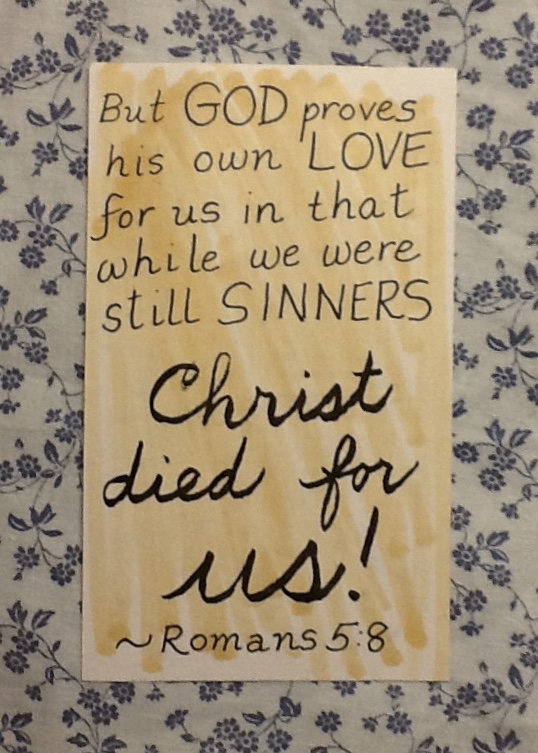 But GOD proves
his own LOVE
for us in that
while we were
still SINNERS
Christ
died for
us!
~Romans 5:8